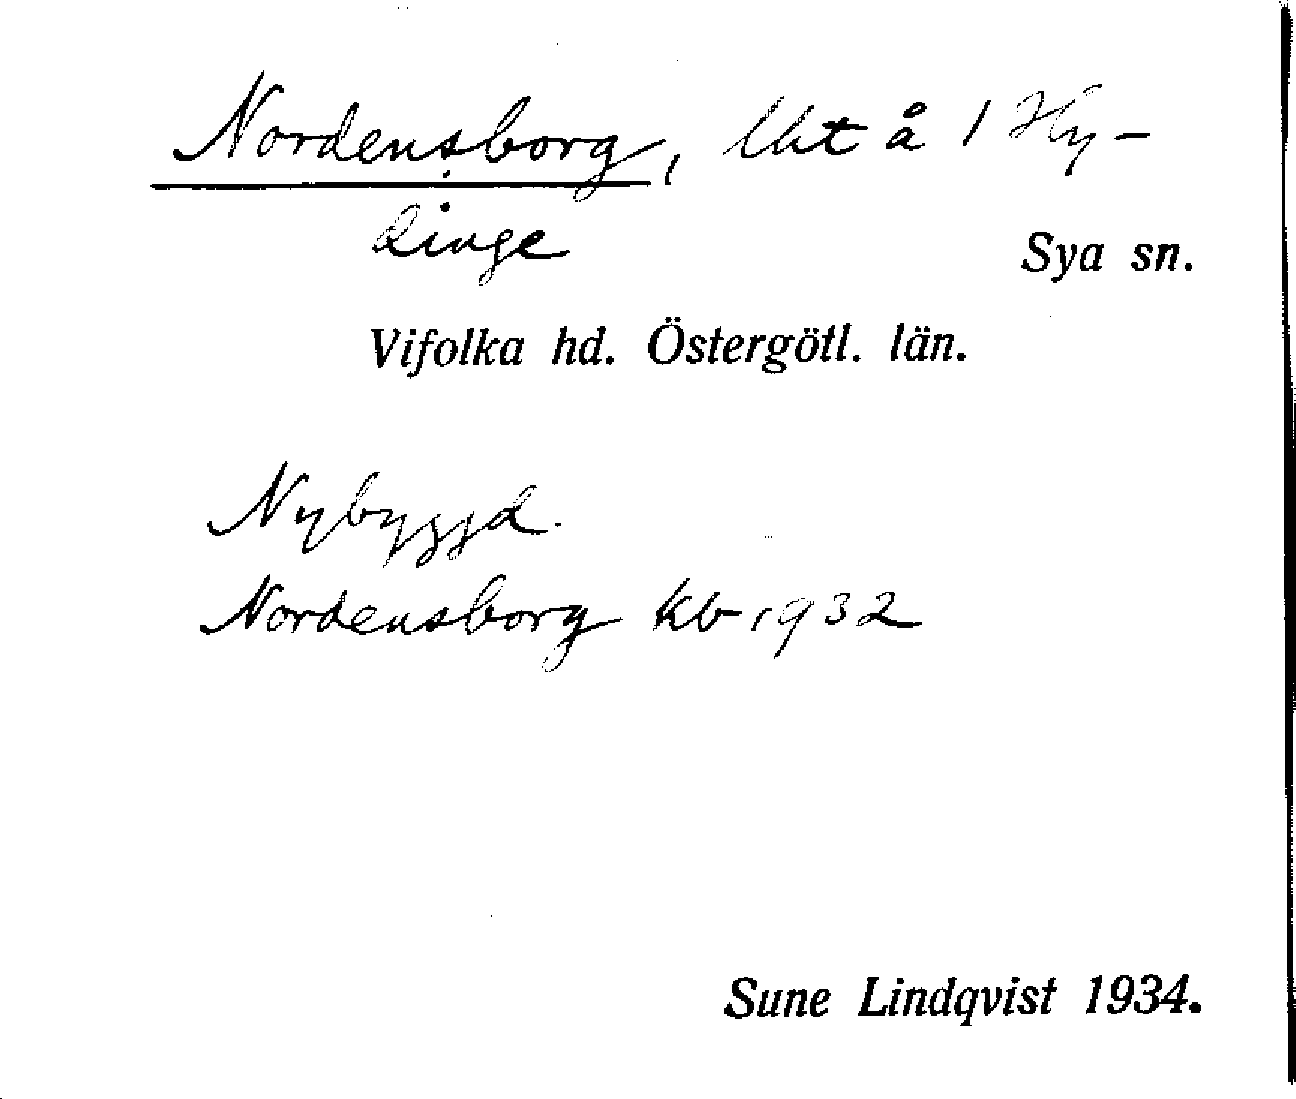 Nordensborg, lht å 1 Hy-
linge
Sya sn.
Vifolka hd. Östergötl. län.
Nybyggd.
Nordensborg kb 1932
Sune Lindqvist 1934.